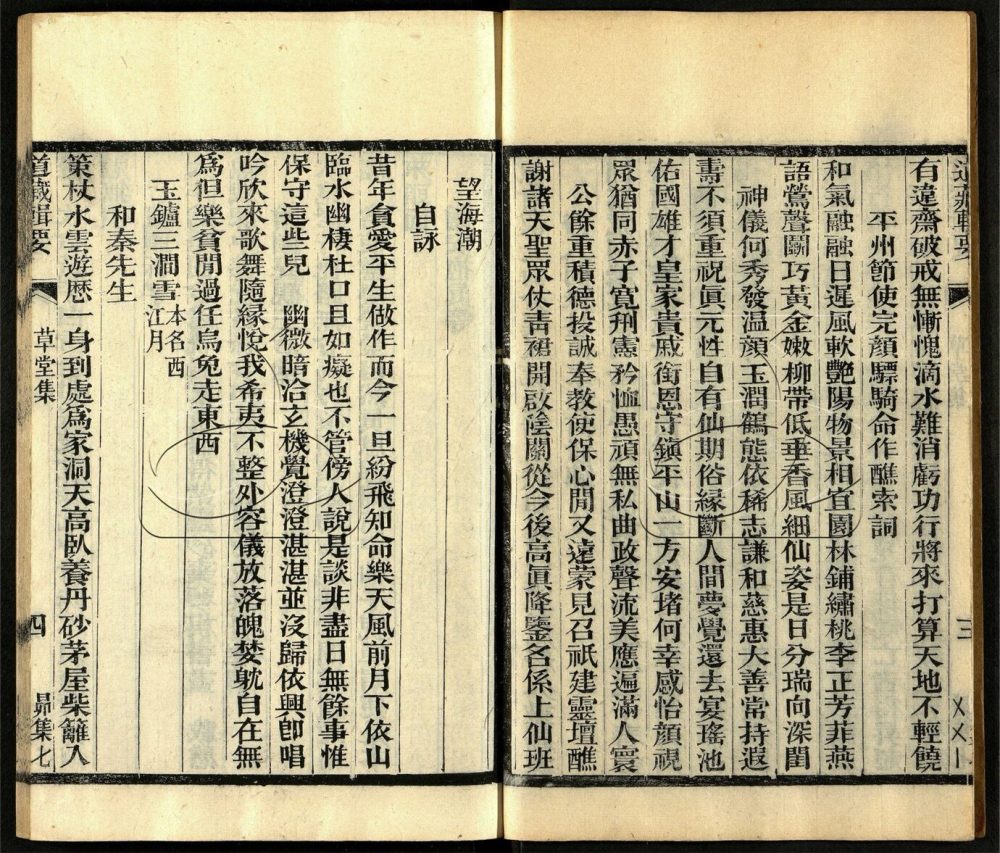 道藏輯要
三
有違齋破戒無慚愧滴水難消虧功行將來打算天地不輕饒
平州節使完顏驃騎命作醮索詞
和氣融融日遲風軟艷陽物景相宜園林鋪繡桃李正芳菲燕
語鶯聲鬭巧黃金嫩柳帶低垂香風細仙姿是日分瑞向深閨
神儀何秀發温顏玉潤鶴態依稀志謙和慈惠大善常持遐
壽不須重祝眞元性自有仙期俗緣斷人間夢覺還去宴瑤池
佑國雄才皇家貴戚銜恩守鎭平山一方安堵何幸感怡顏視
眾猶同赤子寛刑憲矜恤愚頑無私曲政聲流美應遍滿人寰
公餘重積德投誠奉教使保心閒又遠蒙見召祇建靈壇醮
謝諸天聖眾仗青裙開啟陰關從今後高眞降鑒名係上仙班
望海潮
自詠
昔年貪愛平生做作而今一旦紛飛知命樂天風前月下依山
臨水幽棲杜口且如癡也不管傍人說是談非盡日無餘事惟
保守這些兒 幽微暗洽玄機覺澄澄湛湛並沒歸依興卽唱
吟欣來歌舞隨緣悅我希夷不整外容儀放落魄婪躭自在無
爲但樂貧閒過任烏兔走東西
玉鑪三澗雪本名西江月
和秦先生
策杖水雲遊歷一身到處爲家洞天高臥養丹砂茅屋柴籬入
道藏輯要
草堂集
四
昴集七